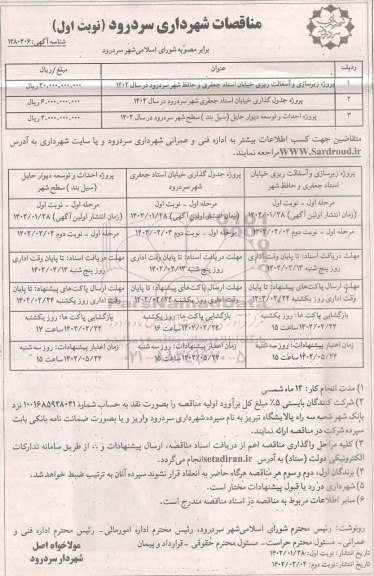 مناقصات شهرداری سردرود (نوبت اول)
شناسه آگهی: ۱۴۸۰۴۰۶
برابر مصوبه شورای اسلامی شهر سردرود
ردیف عنوان مبلغ/ریال
۱ پروژه زیرسازی و آسفالت ریزی خیابان استاد جعفری و حافظ شهر سردرود در سال ۱۴۰۲ ۲۰,۰۰۰,۰۰۰,۰۰۰ ریال
۲ پروژه جدول گذاری خیابان استاد جعفری شهر سردرود در سال ۱۴۰۲ ۶,۰۰۰,۰۰۰,۰۰۰ ریال
۳ پروژه احداث و توسعه دیوار حایل (سیل بند) سطح شهر سردرود در سال ۱۴۰۲
متقاضین جهت کسب اطلاعات بیشتر به اداره فنی و عمرانی شهرداری سردرود و یا سایت شهرداری به آدرس
WWW.Sardroud.ir مراجعه نمایند.
پروژه زیرسازی و آسفالت ریزی خیابان استاد جعفری و حافظ شهر
پروژه جدول گذاری خیابان استاد جعفری شهر سردرود
پروژه احداث و توسعه دیوار حایل (سیل بند) سطح شهر
مرحله اول - نوبت اول (زمان انتشار اولین آگهی) ۱۴۰۲/۰۱/۲۸
مرحله اول - نوبت اول (زمان انتشار اولین آگهی) ۱۴۰۲/۰۱/۲۸
مرحله اول - نوبت اول (زمان انتشار اولین آگهی) ۱۴۰۲/۰۱/۲۸
مرحله اول - نوبت دوم ۱۴۰۲/۰۲/۰۴
مرحله اول - نوبت دوم ۱۴۰۲/۰۲/۰۴
مرحله اول - نوبت دوم ۱۴۰۲/۰۲/۰۴
مهلت دریافت اسناد: تا پایان وقت اداری روز پنج شنبه ۱۴۰۲/۰۲/۱۴
مهلت دریافت اسناد: تا پایان وقت اداری روز پنج شنبه ۱۴۰۲/۰۲/۱۴
مهلت دریافت اسناد: تا پایان وقت اداری روز پنج شنبه ۱۴۰۲/۰۲/۱۴
مهلت ارسال پاکت‌های پیشنهاد: تا پایان وقت اداری روز یکشنبه ۱۴۰۲/۰۲/۲۴
مهلت ارسال پاکت‌های پیشنهاد: تا پایان وقت اداری روز یکشنبه ۱۴۰۲/۰۲/۲۴
مهلت ارسال پاکت‌های پیشنهاد: تا پایان وقت اداری روز یکشنبه ۱۴۰۲/۰۲/۲۴
بازگشایی پاکت ها: روز یکشنبه ۱۴۰۲/۰۲/۲۴ ساعت ۱۵
بازگشایی پاکت ها: روز یکشنبه ۱۴۰۲/۰۲/۲۴ ساعت ۱۶
بازگشایی پاکت ها: روز یکشنبه ۱۴۰۲/۰۲/۲۴ ساعت ۱۷
زمان اعتبار پیشنهادات: روز سه شنبه ۱۴۰۲/۰۵/۲۴ ساعت ۱۵
زمان اعتبار پیشنهادات: روز سه شنبه ۱۴۰۲/۰۵/۲۴ ساعت ۱۵
زمان اعتبار پیشنهادات: روز سه شنبه ۱۴۰۲/۰۵/۲۴ ساعت ۱۵
۱) مدت انجام کار: ۱۲ ماه شمسی
۲) شرکت کنندگان بایستی ۵٪ مبلغ کل برآورد اولیه مناقصه را بصورت نقد به حساب شماره ۱۰۰۱۶۸۵۹۲۸۰۴۱ نزد
بانک شهر شعبه سه راه پالایشگاه تبریز به نام سپرده شهرداری سردرود واریز و یا بصورت ضمانت نامه بانکی بابت
سپرده شرکت در مناقصه ارائه نمایند.
۳) کلیه مراحل واگذاری مناقصه اعم از دریافت اسناد مناقصه، ارسال پیشنهادات و .. از طریق سامانه تدارکات
الکترونیکی دولت (ستاد) به آدرس setadiran.ir انجام می‌گردد.
۴) برندگان اول، دوم و سوم هر مناقصه هرگاه حاضر به انعقاد قرار نشوند سپرده آنان به ترتیب ضبط خواهد شد.
۵) شهرداری در رد یا قبول پیشنهادات مختار است.
۶) سایر اطلاعات مربوط به مناقصه در اسناد مناقصه مندرج است.
رونوشت: رئیس محترم شورای اسلامی شهر سردرود، رئیس محترم اداره امورمالی- رئیس محترم اداره فنی و
عمرانی- مسئول محترم حراست - مسئول محترم حقوقی - قرارداد و پیمان
تاریخ انتشار: نوبت اول: ۱۴۰۲/۰۱/۲۸
تاریخ انتشار: نوبت دوم: ۱۴۰۲/۰۲/۰۴
مولاخواه اصل
شهردار سردرود